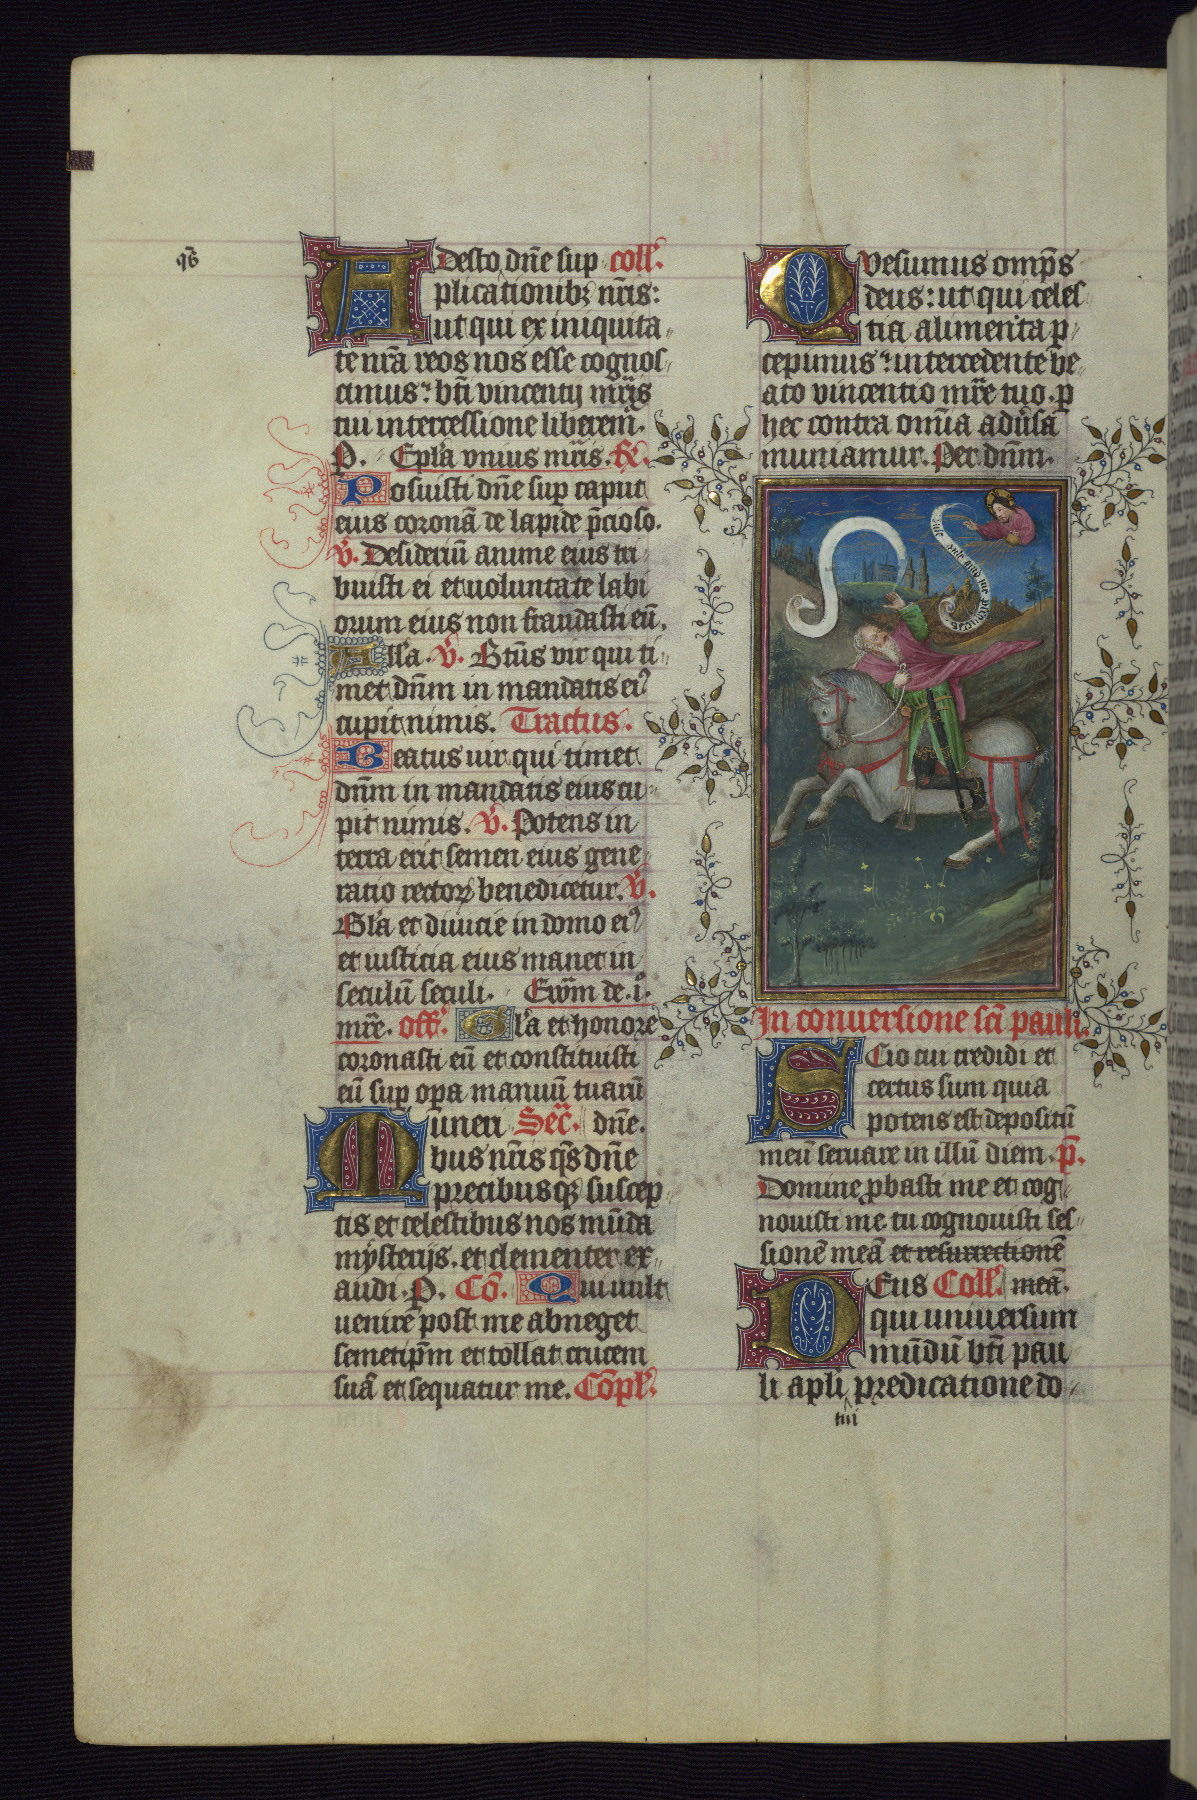 Desto dn̄e sup coll'.
plicationibꝫ nr̄is:
ut qui ex iniquita
te nr̄a reos nos esse cognos
cimus: bt̄i vincentij mr̄is
tui intercessione liberem̄.
P. Epl'a vnius mr̄is.
Posuisti dn̄e sup caput
eius coronā de lapide p̄cioso.
v̄. Desideriū anime eius tri
buisti ei et uoluntate labi
orum eius non fraudasti eū.
All'a. v̄. Btūs vir qui ti
met dn̄m in mandatis ei⁹
cupit nimis. Tractus.
Beatus uir qui timet
dn̄m in mandatis eius cu
pit nimis. v̄. Potens in
terra erit semen eius gene
ratio rectoꝝ benedicetur. v̄.
Gl'a et diuicie in domo ei⁹
et iusticia eius manet in
seculū seculi. Ewm̄ de .i.
mr̄e. off'. Gl'a et honore
coronasti eū et constituisti
eū sup opa manuū tuarū
Muneri Sec̄. dn̄e.
bus nr̄is qs̄ dn̄e
precibusqꝫ suscep
tis et celestibus nos mūda
mysterijs. et clementer ex
audi. P. Cō. Qui uult
uenire post me abneget
semetip̄m et tollat crucem
suā et sequatur me. Cōpl'.
Quesumus omp̄s
deus: ut qui celes
tia alimenta p
cepimus: intercedente be
ato vincentio mr̄e tuo. p
hec contra omīa adūsa
muniamur. Per dn̄m.
In conuersione sc̄i pauli.
Scio cui credidi et
certus sum quia
potens est depositū
meū seruare in illū diem. p̄.
Domine ꝓbasti me et cog
nouisti me tu cognouisti ses
sionē meā et resurrectionē
Deus Coll'. meā.
qui uniuersum
mūdū bt̄i pau
li apli predicatione do
tui